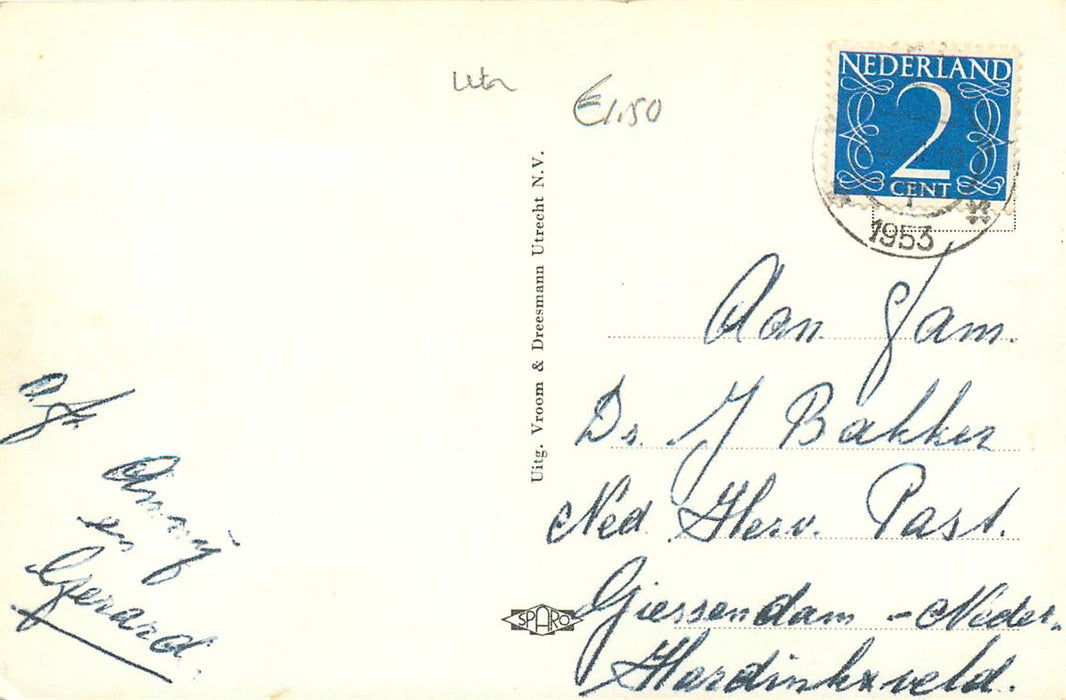 utr
€1.50
NEDERLAND
2
CENT
1953
Uitg. Vroom & Dreesmann Utrecht N.V.
Aan Fam.
Ds. J Bakker
Ned. Herv. Past.
Giessendam - Neder-
Hardinkxveld.
SPARO
Annij
en
Gerard.